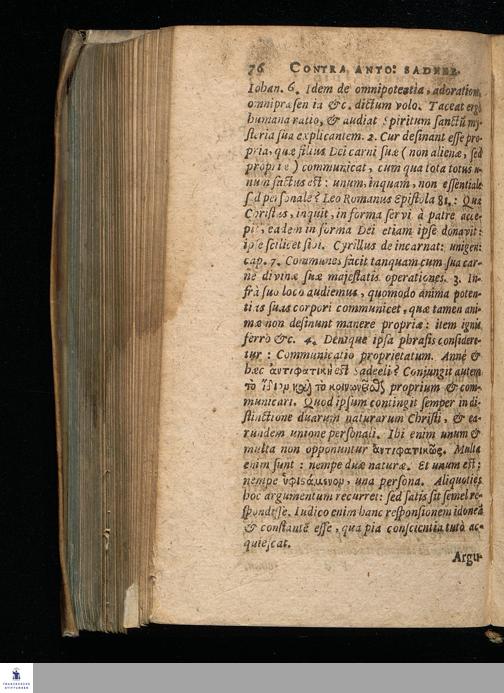 76 CONTRA ANTO: SADEEL.
Iohan. 6. Idem de omnipotentia, adoratione,
omnipræsentia &c. dictum volo. Taceat ergo
humana ratio, & audiat Spiritum sanctū my-
steria sua explicantem. 2. Cur desinant esse pro-
pria, quæ filius Dei carni suæ (non alienæ, sed
propriæ) communicat, cum qua tota totus u-
num factus est: unum, inquam, non essentiale
sed personale? Leo Romanus Epistola 81.: Quæ
Christus, inquit, in forma servi à patre acce-
pit, eadem in forma Dei etiam ipse donavit:
ipse scilicet sibi. Cyrillus de incarnat: unigen:
cap. 7. Communes facit tanquam cum sua car-
ne divinæ suæ majestatis operationes. 3. In-
frà suo loco audiemus, quomodo anima poten-
tias suas corpori communicet, quæ tamen ani-
mæ non desinunt manere propriæ: item ignis
ferro &c. 4. Denique ipsa phrasis considere-
tur: Communicatio proprietatum. Annè &
hæc ἀντιφατικὴ est Sadeeli? Conjungit autem
τὸ ἴδιον καὶ τὸ κοινωνεῖσθαι proprium & com-
municari. Quod ipsum contingit semper in di-
stinctione duarum naturarum Christi, & ea-
rundem unione personali. Ibi enim unum &
multa non opponuntur ἀντιφατικῶς. Multa
enim sunt: nempe duæ naturæ. Et unum est:
nempe ὑφιστάμενον, una persona. Aliquoties
hoc argumentum recurret: sed satis sit semel re-
spondisse. Iudico enim hanc responsionem idoneā
& constantē esse, qua pia conscientia tutò ac-
quiescat.
Argu-